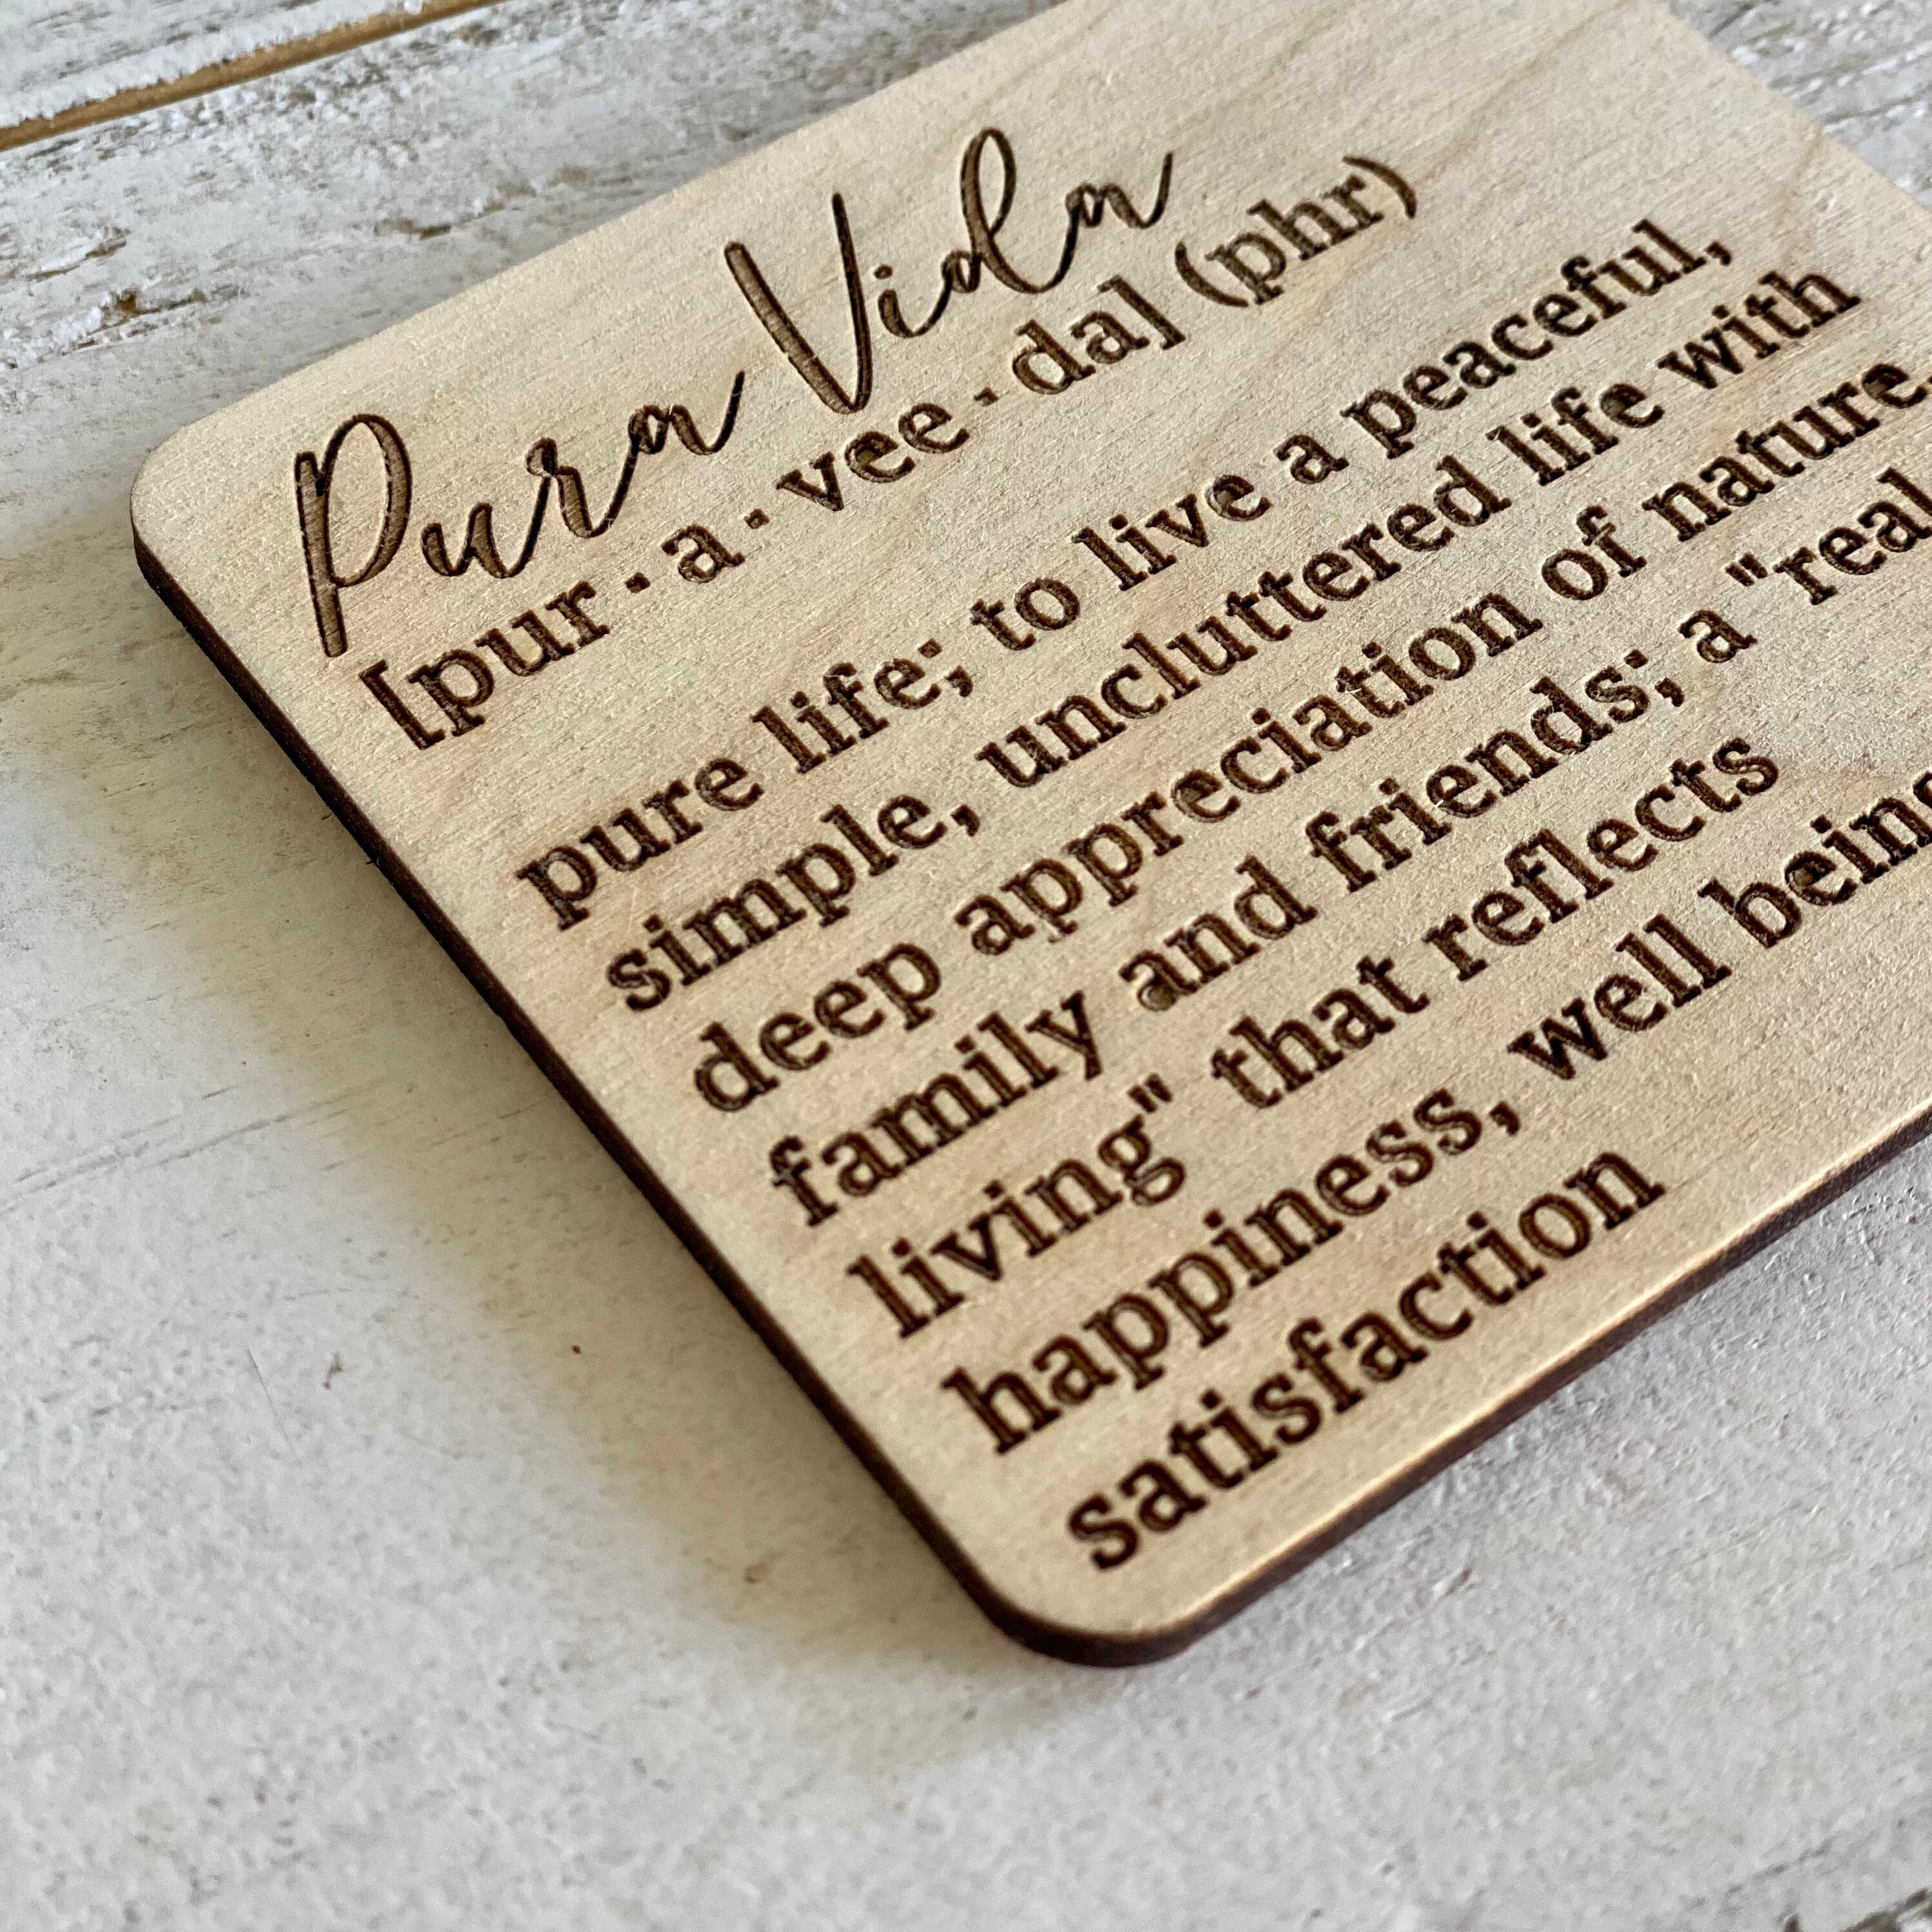 Pura Vida
[pur·a·vee·da] (phr)
pure life; to live a peaceful,
simple, uncluttered life with
deep appreciation of nature,
family and friends; a "real
living" that reflects
happiness, well being
satisfaction